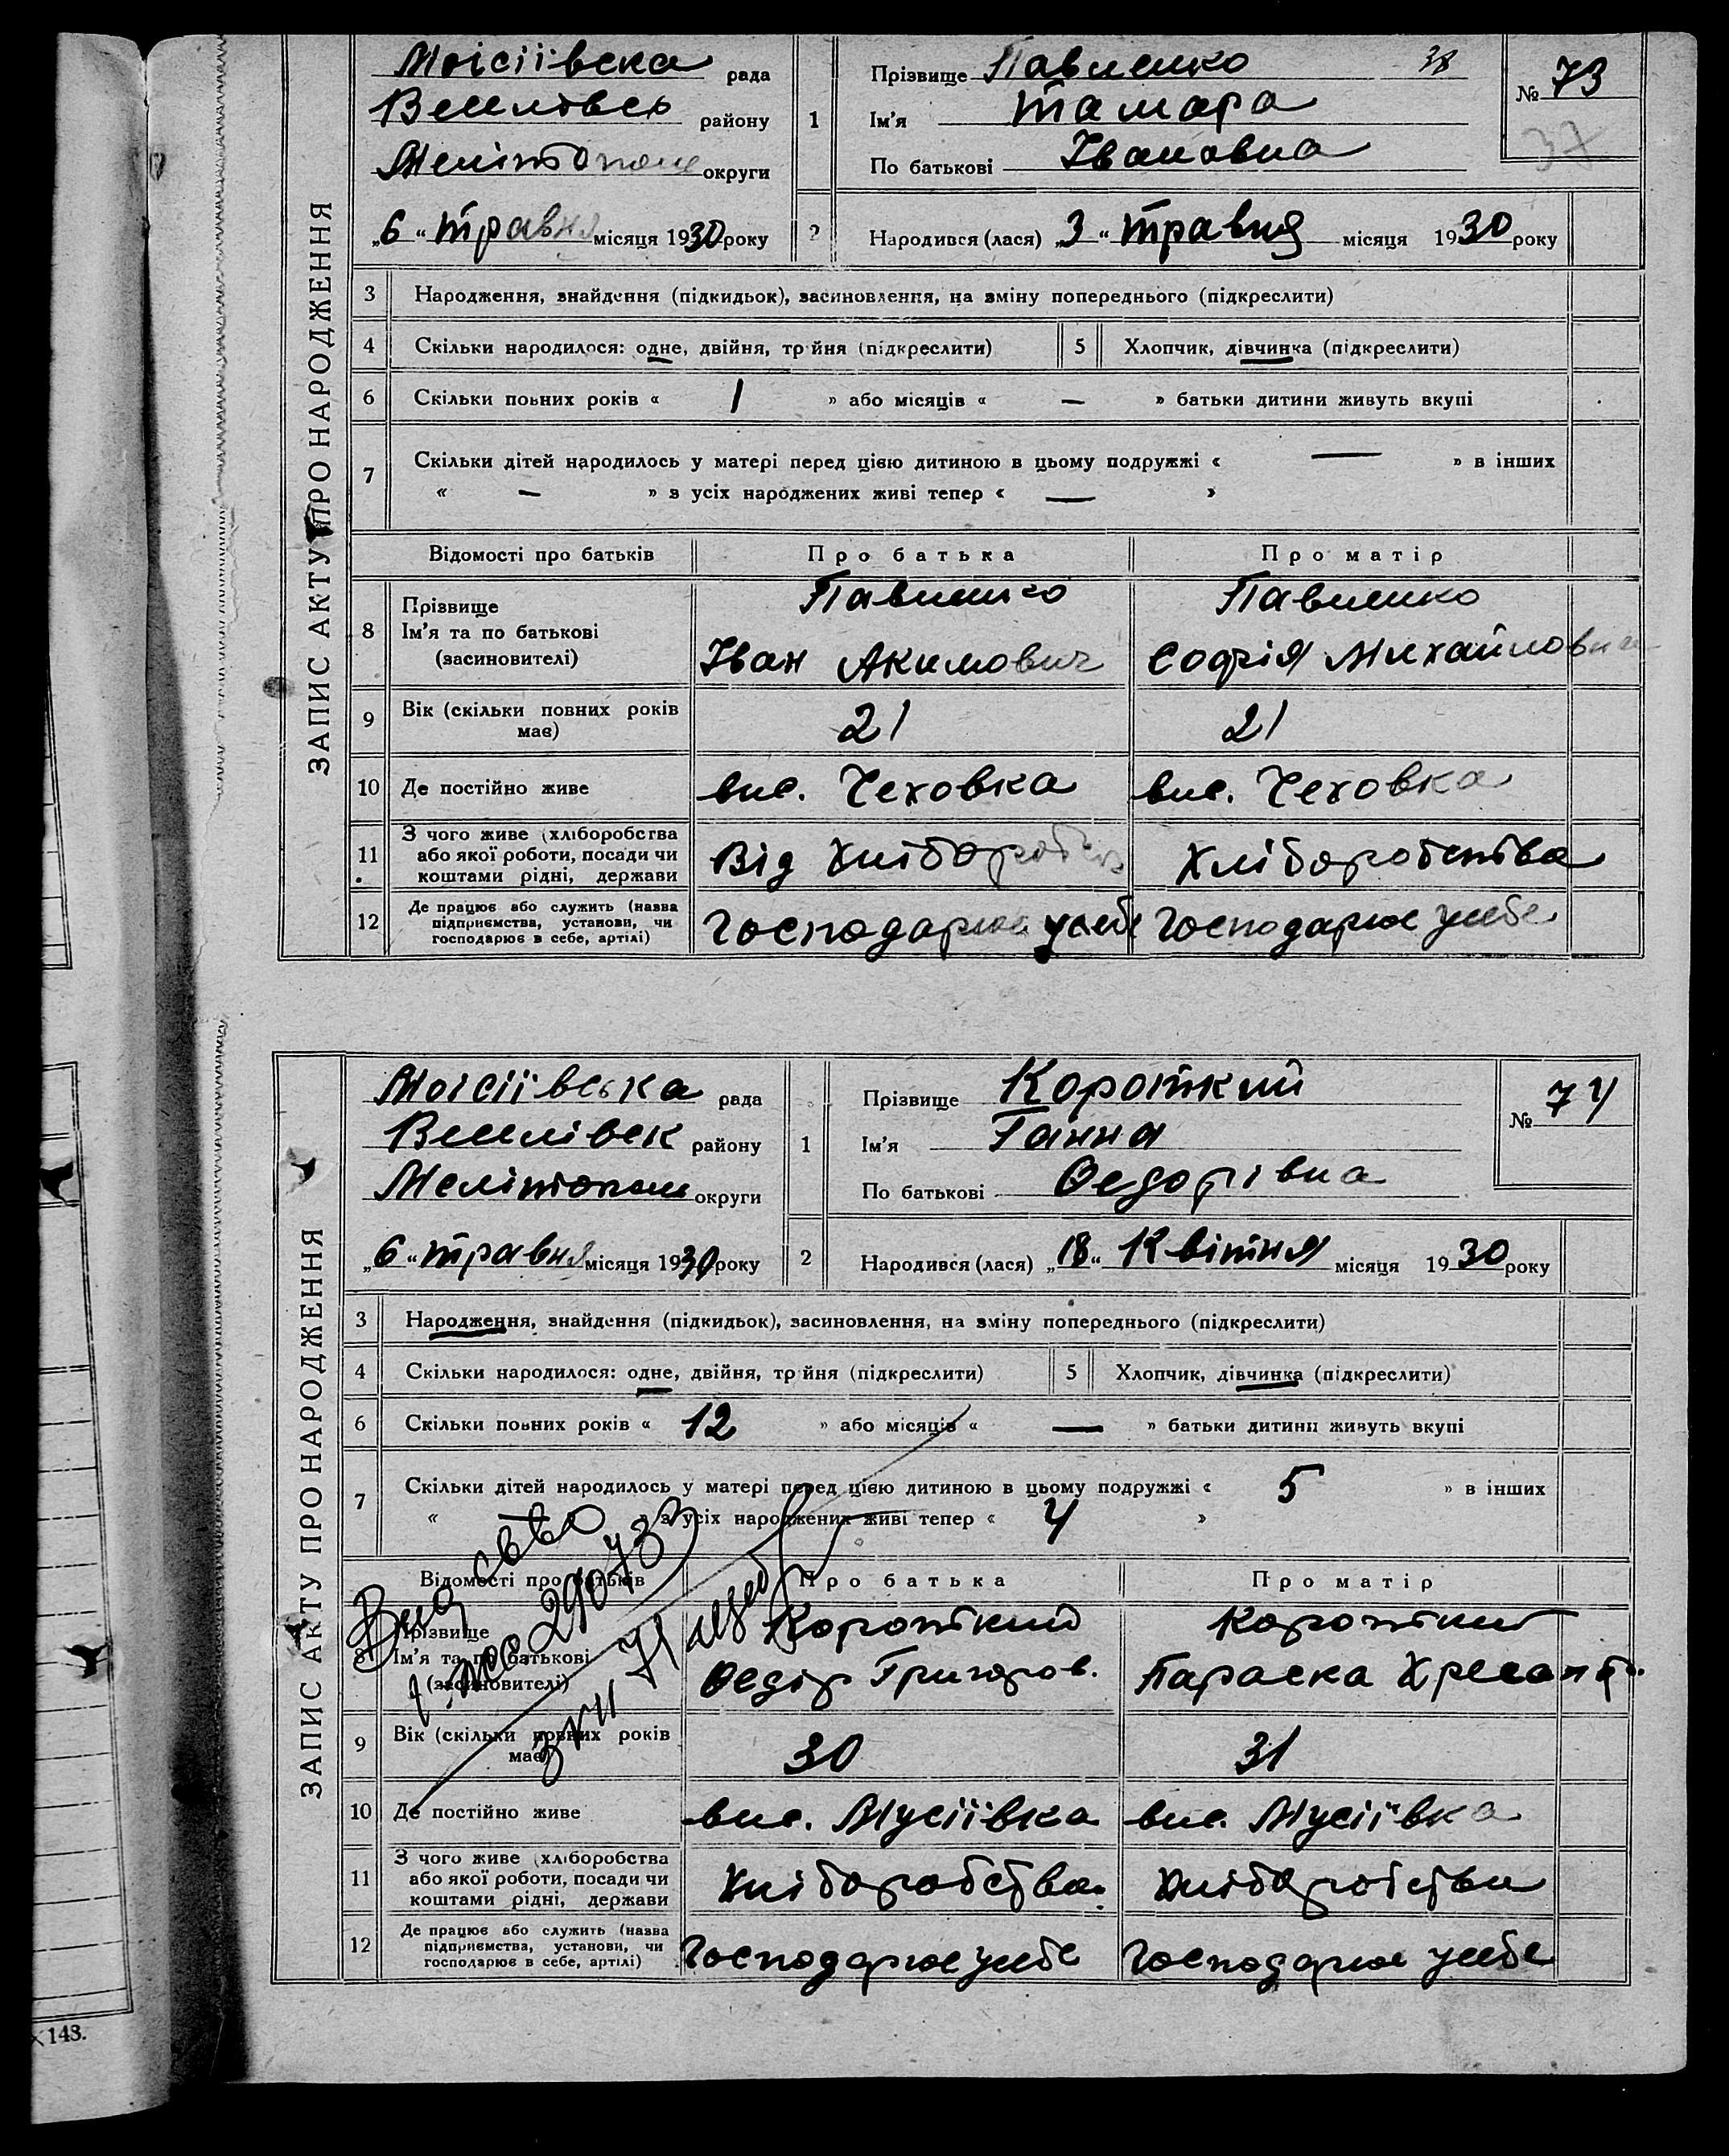 ЗАПИС АКТУ ПРО НАРОДЖЕННЯ
Моісіївська рада
Веселівсь району
Мелітопол округи
„6“ травня місяця 1930 року
1 Прізвище Павленко 38
Ім'я Тамара
По батькові Івановна
№ 73
37
2 Народився (лася) „3“ травня місяця 1930 року
3 Народження, знайдення (підкидьок), засиновлення, на зміну попереднього (підкреслити)
4 Скільки народилося: одне, двійня, тройня (підкреслити) 5 Хлопчик, дівчинка (підкреслити)
6 Скільки повних років « 1 » або місяців « — » батьки дитини живуть вкупі
7 Скільки дітей народилось у матері перед цією дитиною в цьому подружжі « — » в інших
« — » з усіх народжених живі тепер « — »
Відомості про батьків Про батька Про матір
8 Прізвище Павленко Павленко
Ім'я та по батькові Іван Акимович Софія Михайловна
(засиновителі)
9 Вік (скільки повних років має) 21 21
10 Де постійно живе вис. Чеховка вис. Чеховка
11 З чого живе (хліборобства Від хліборобства Хліборобства
або якої роботи, посади чи
коштами рідні, держави
12 Де працює або служить (назва Господарює у себе Господарює у себе
підприємства, установи, чи
господарює в себе, артілі)
ЗАПИС АКТУ ПРО НАРОДЖЕННЯ
Моісіївська рада
Веселівськ району
Мелітопол округи
„6“ травня місяця 1930 року
1 Прізвище Короткий
Ім'я Ганна
По батькові Федорівна
№ 74
2 Народився (лася) „18“ Квітня місяця 1930 року
3 Народження, знайдення (підкидьок), засиновлення, на зміну попереднього (підкреслити)
4 Скільки народилося: одне, двійня, тройня (підкреслити) 5 Хлопчик, дівчинка (підкреслити)
6 Скільки повних років « 12 » або місяців « — » батьки дитини живуть вкупі
7 Скільки дітей народилось у матері перед цією дитиною в цьому подружжі « 5 » в інших
« » з усіх народжених живі тепер « 4 »
Відомості про батьків Про батька Про матір
8 Прізвище Короткий Короткий
Ім'я та по батькові Федір Григоров. Параска Хресантів.
(засиновителі)
9 Вік (скільки повних років має) 30 31
10 Де постійно живе вис. Мусіївка вис. Мусіївка
11 З чого живе (хліборобства Хліборобства. Хліборобства
або якої роботи, посади чи
коштами рідні, держави
12 Де працює або служить (назва Господарює у себе Господарює у себе
підприємства, установи, чи
господарює в себе, артілі)
143.